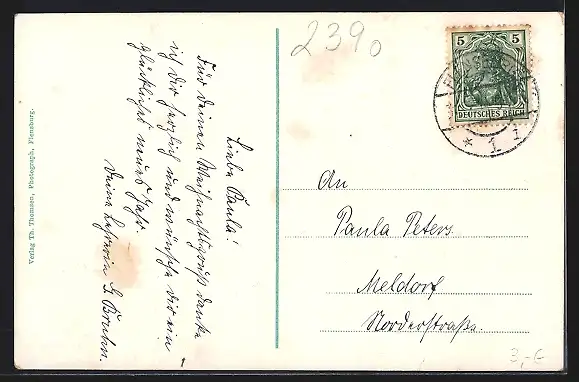 Verlag Th. Thomsen, Photograph, Flensburg.
Liebe Paula!
Für deinen Weihnachtsgruß danke
ich dir herzlich und wünsche dir ein
glückliches neues Jahr.
Deine Lehrerin G. Bruhn.
2390
5 5
DEUTSCHES REICH
* 1 1
An
Paula Peters
Meldorf
Norderstraße.
3,-€